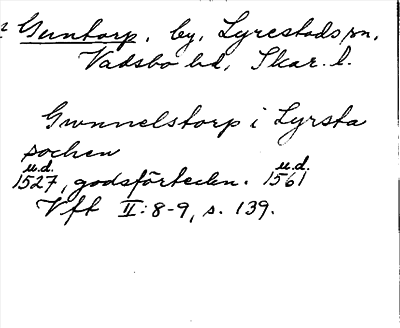 Guntorp, by, Lyrestads sn,
Vadsbo hd, Skar. l.
Gwnnelstorp i Lyrsta
sochen
u.d. u.d.
1527, godsförteckn. 1561
Vft II:8-9, s. 139.